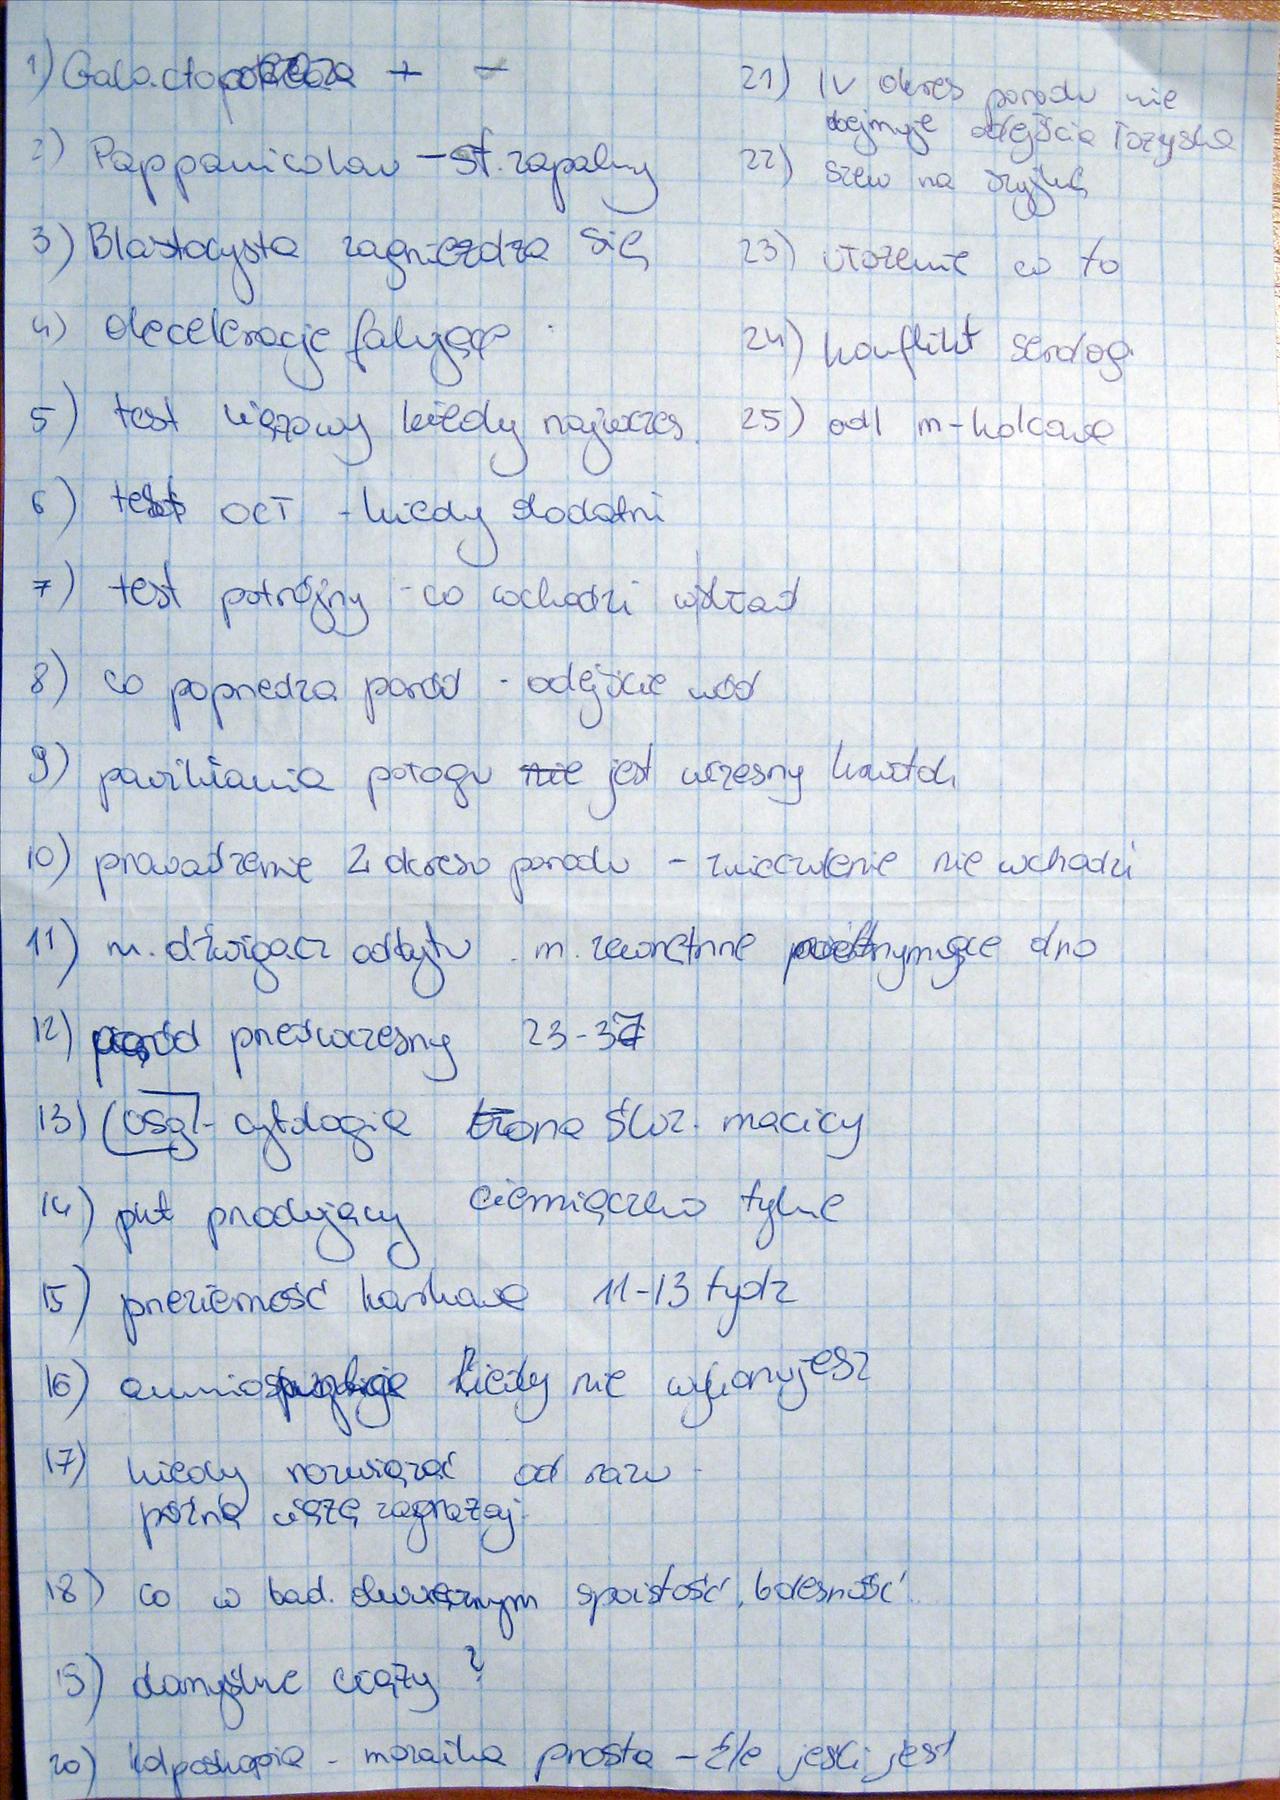 1) Galacto + -
2) Pappanicolau - st. zapalny
3) Blastocysta zagnieżdża się
4) deceleracje
5) test ciążowy kiedy najwczes.
6) test OCT - kiedy dodatni
7) test potrójny - co wchodzi w skład
8) co poprzedza poród - odejście wód
9) powikłania połogu nie jest wczesny
10) prowadzenie 2 okresu porodu - znieczulenie nie wchodzi
11) m. dźwigacz odbytu m. zewnętrzne dno
12) poród przedwczesny 23-37
13) cytologia błona śluz. macicy
14) pkt produjący ciemiączko tylne
15) przezierność karkowa 11-13 tydz
16) kiedy nie wykonujesz
17) kiedy rozwiązać od razu
późną ciążę zagrażaj.
18) co w bad. dwuręcznym spoistość, bolesność
19) domyślne ciąży ?
20) kolposkopia - mozaika prosta - źle jeśli jest
21) IV okres porodu nie
obejmuje odejścia łożyska
22) szew na szyjkę
23) ułożenie co to
24) konflikt serolog.
25) odl m-kolcowe